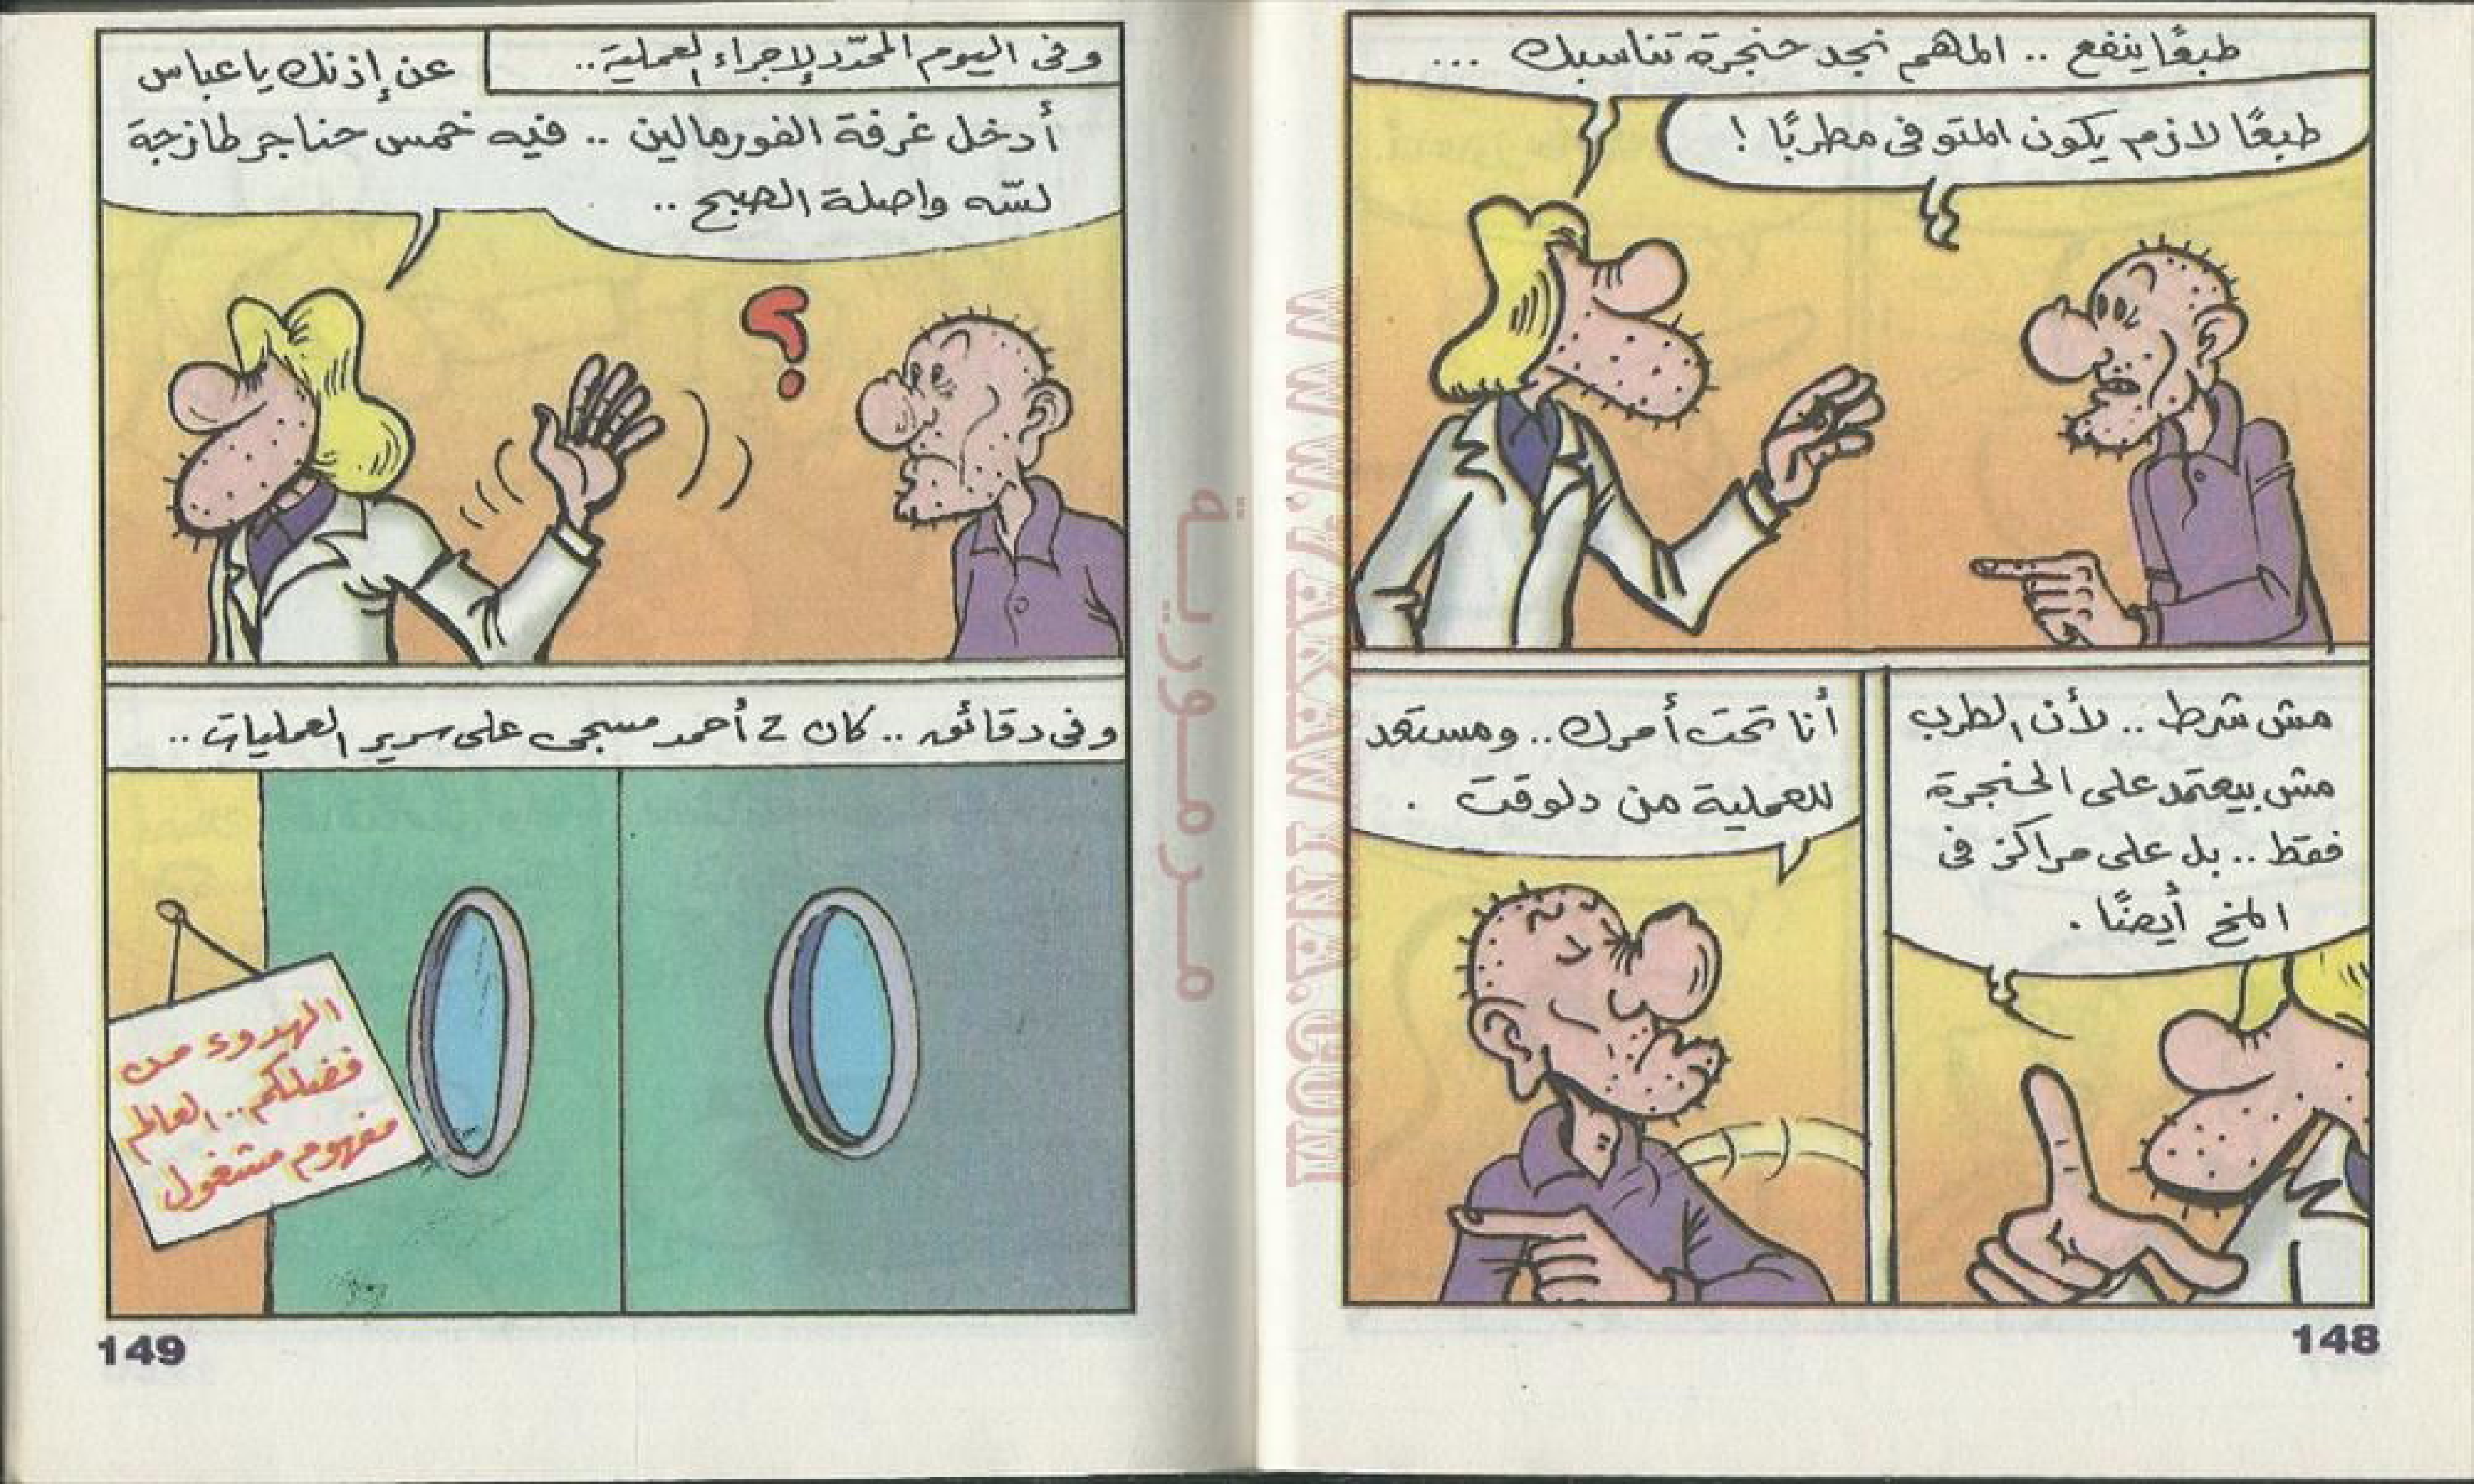 طبعًا ينفع .. المهم نجد حنجرة تناسبك ...
طبعًا لازم يكون المتوفى مطربًا !
مش شرط .. لأن الطرب
مش بيعتمد على الحنجرة
فقط .. بل على مراكز فى
المخ أيضًا .
أنا تحت أمرك .. ومستعد
للعملية من دلوقت .
148
وفى اليوم المحدّد لإجراء العملية ..
عن إذنك يا عباس
أدخل غرفة الفورمالين .. فيه خمس حناجر طازجة
لسّه واصلة الصبح ..
؟
وفى دقائق .. كان 2 أحمد مسجى على سرير العمليات ..
الهدوء من
فضلكم .. العالم
مفهوم مشغول
149
مرمورية